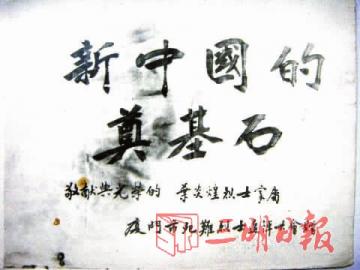 新中國的
奠基石
敬献與光榮的 葉炎煌烈士家屬
廈門市死難烈士追悼大會贈
三明日报